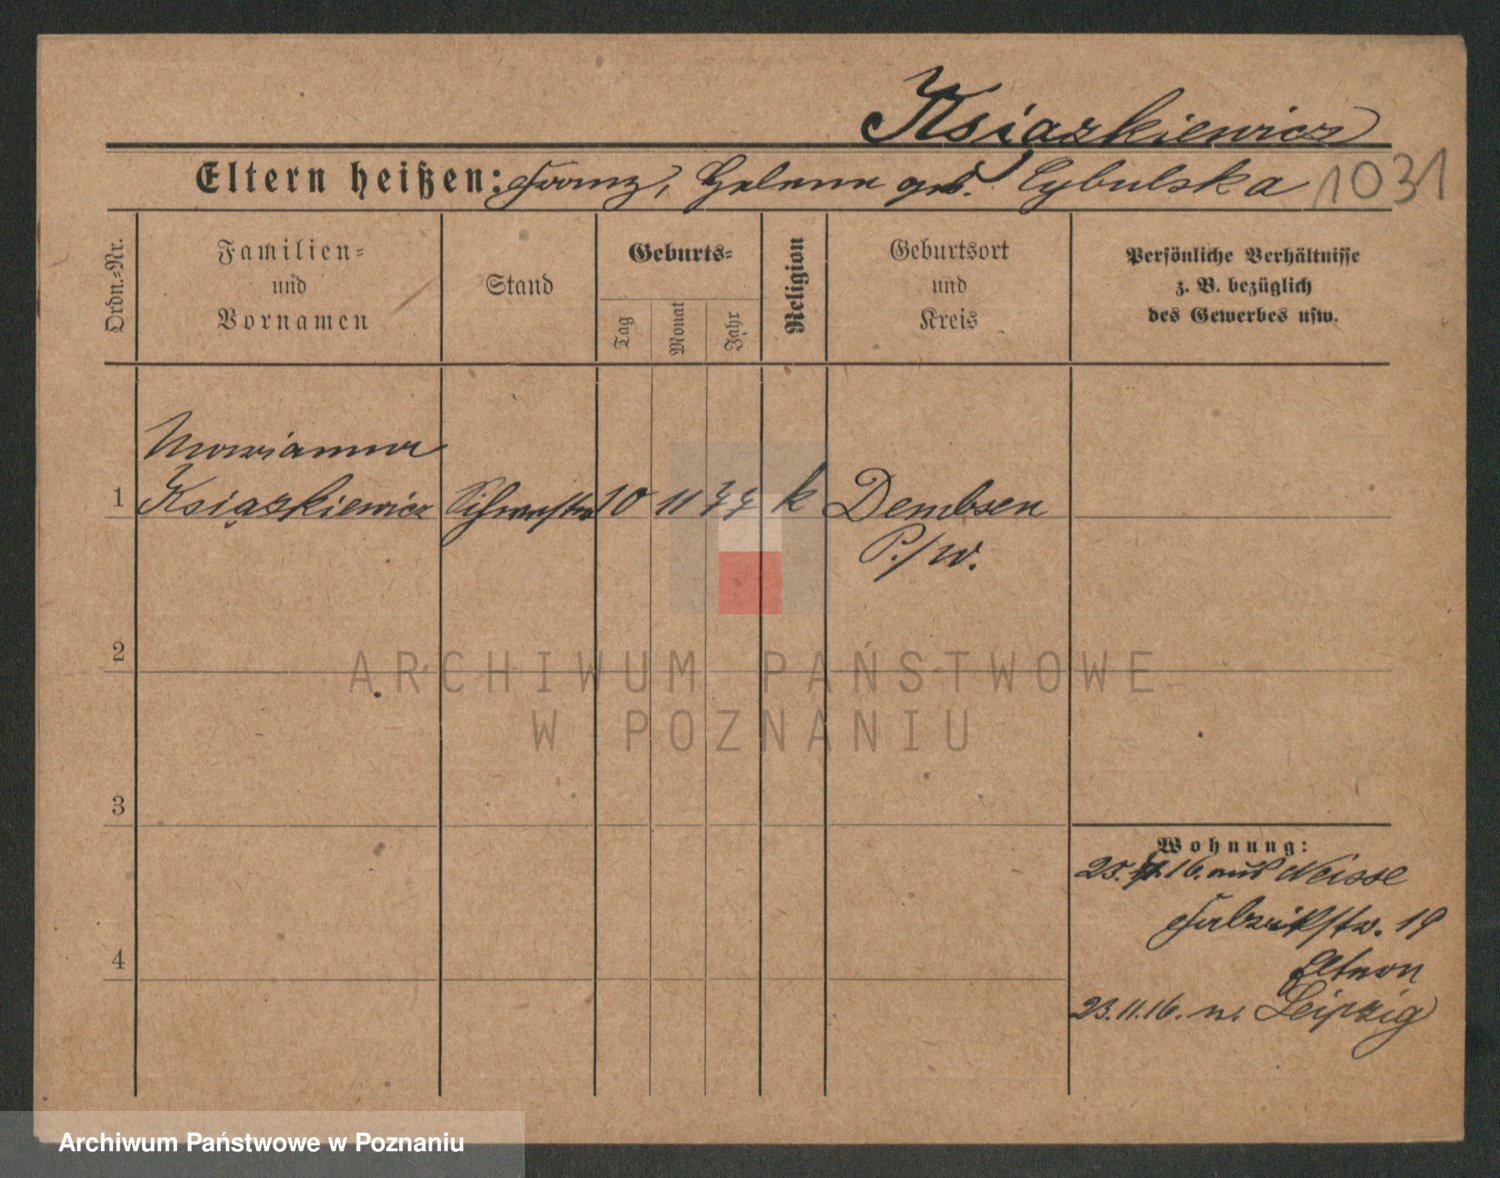 Książkiewicz
Eltern heißen: Franz, Helene geb. Cybulska
1031
Ordn.=Nr.
Familien=
und
Vornamen
Stand
Geburts=
Tag
Monat
Jahr
Religion
Geburtsort
und
Kreis
Persönliche Verhältnisse
z. B. bezüglich
des Gewerbes usw.
Maryanna
1 Książkiewicz Schwester 10 11 k Dembsen
P./W.
2
3
4
Wohnung:
25. 16. aus Neisse
Fabrikstr. 19
Eltern
23.11.16. n. Leipzig
ARCHIWUM PAŃSTWOWE
W POZNANIU
Archiwum Państwowe w Poznaniu